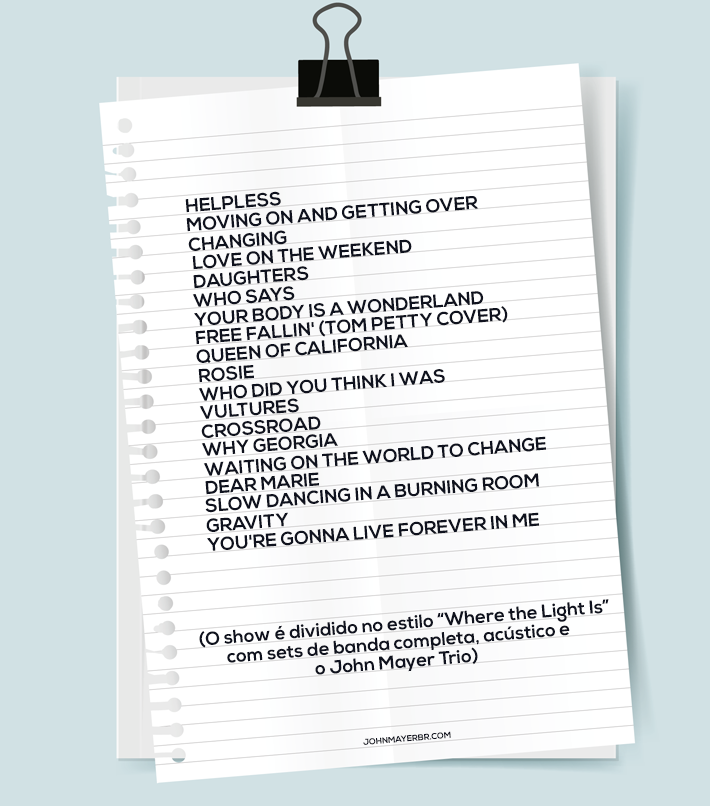 HELPLESS
MOVING ON AND GETTING OVER
CHANGING
LOVE ON THE WEEKEND
DAUGHTERS
WHO SAYS
YOUR BODY IS A WONDERLAND
FREE FALLIN' (TOM PETTY COVER)
QUEEN OF CALIFORNIA
ROSIE
WHO DID YOU THINK I WAS
VULTURES
CROSSROAD
WHY GEORGIA
WAITING ON THE WORLD TO CHANGE
DEAR MARIE
SLOW DANCING IN A BURNING ROOM
GRAVITY
YOU'RE GONNA LIVE FOREVER IN ME
(O show é dividido no estilo “Where the Light Is”
com sets de banda completa, acústico e
o John Mayer Trio)
JOHNMAYERBR.COM